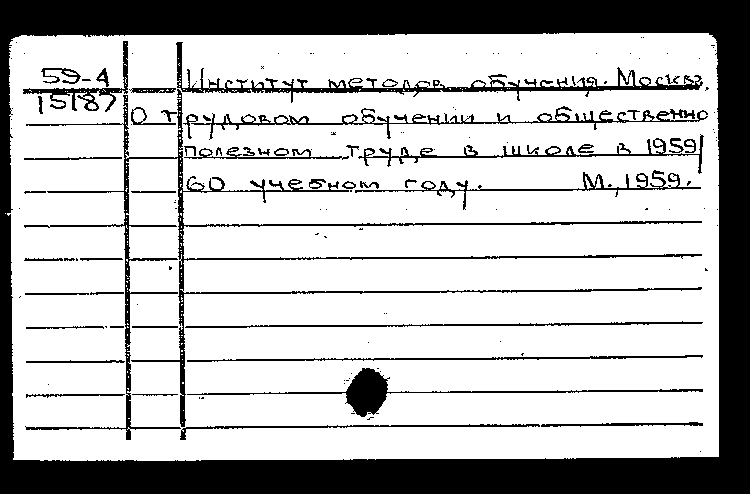 59-4
15187
Институт методов обучения. Москва.
О трудовом обучении и общественно
полезном труде в школе в 1959/
60 учебном году. М., 1959.